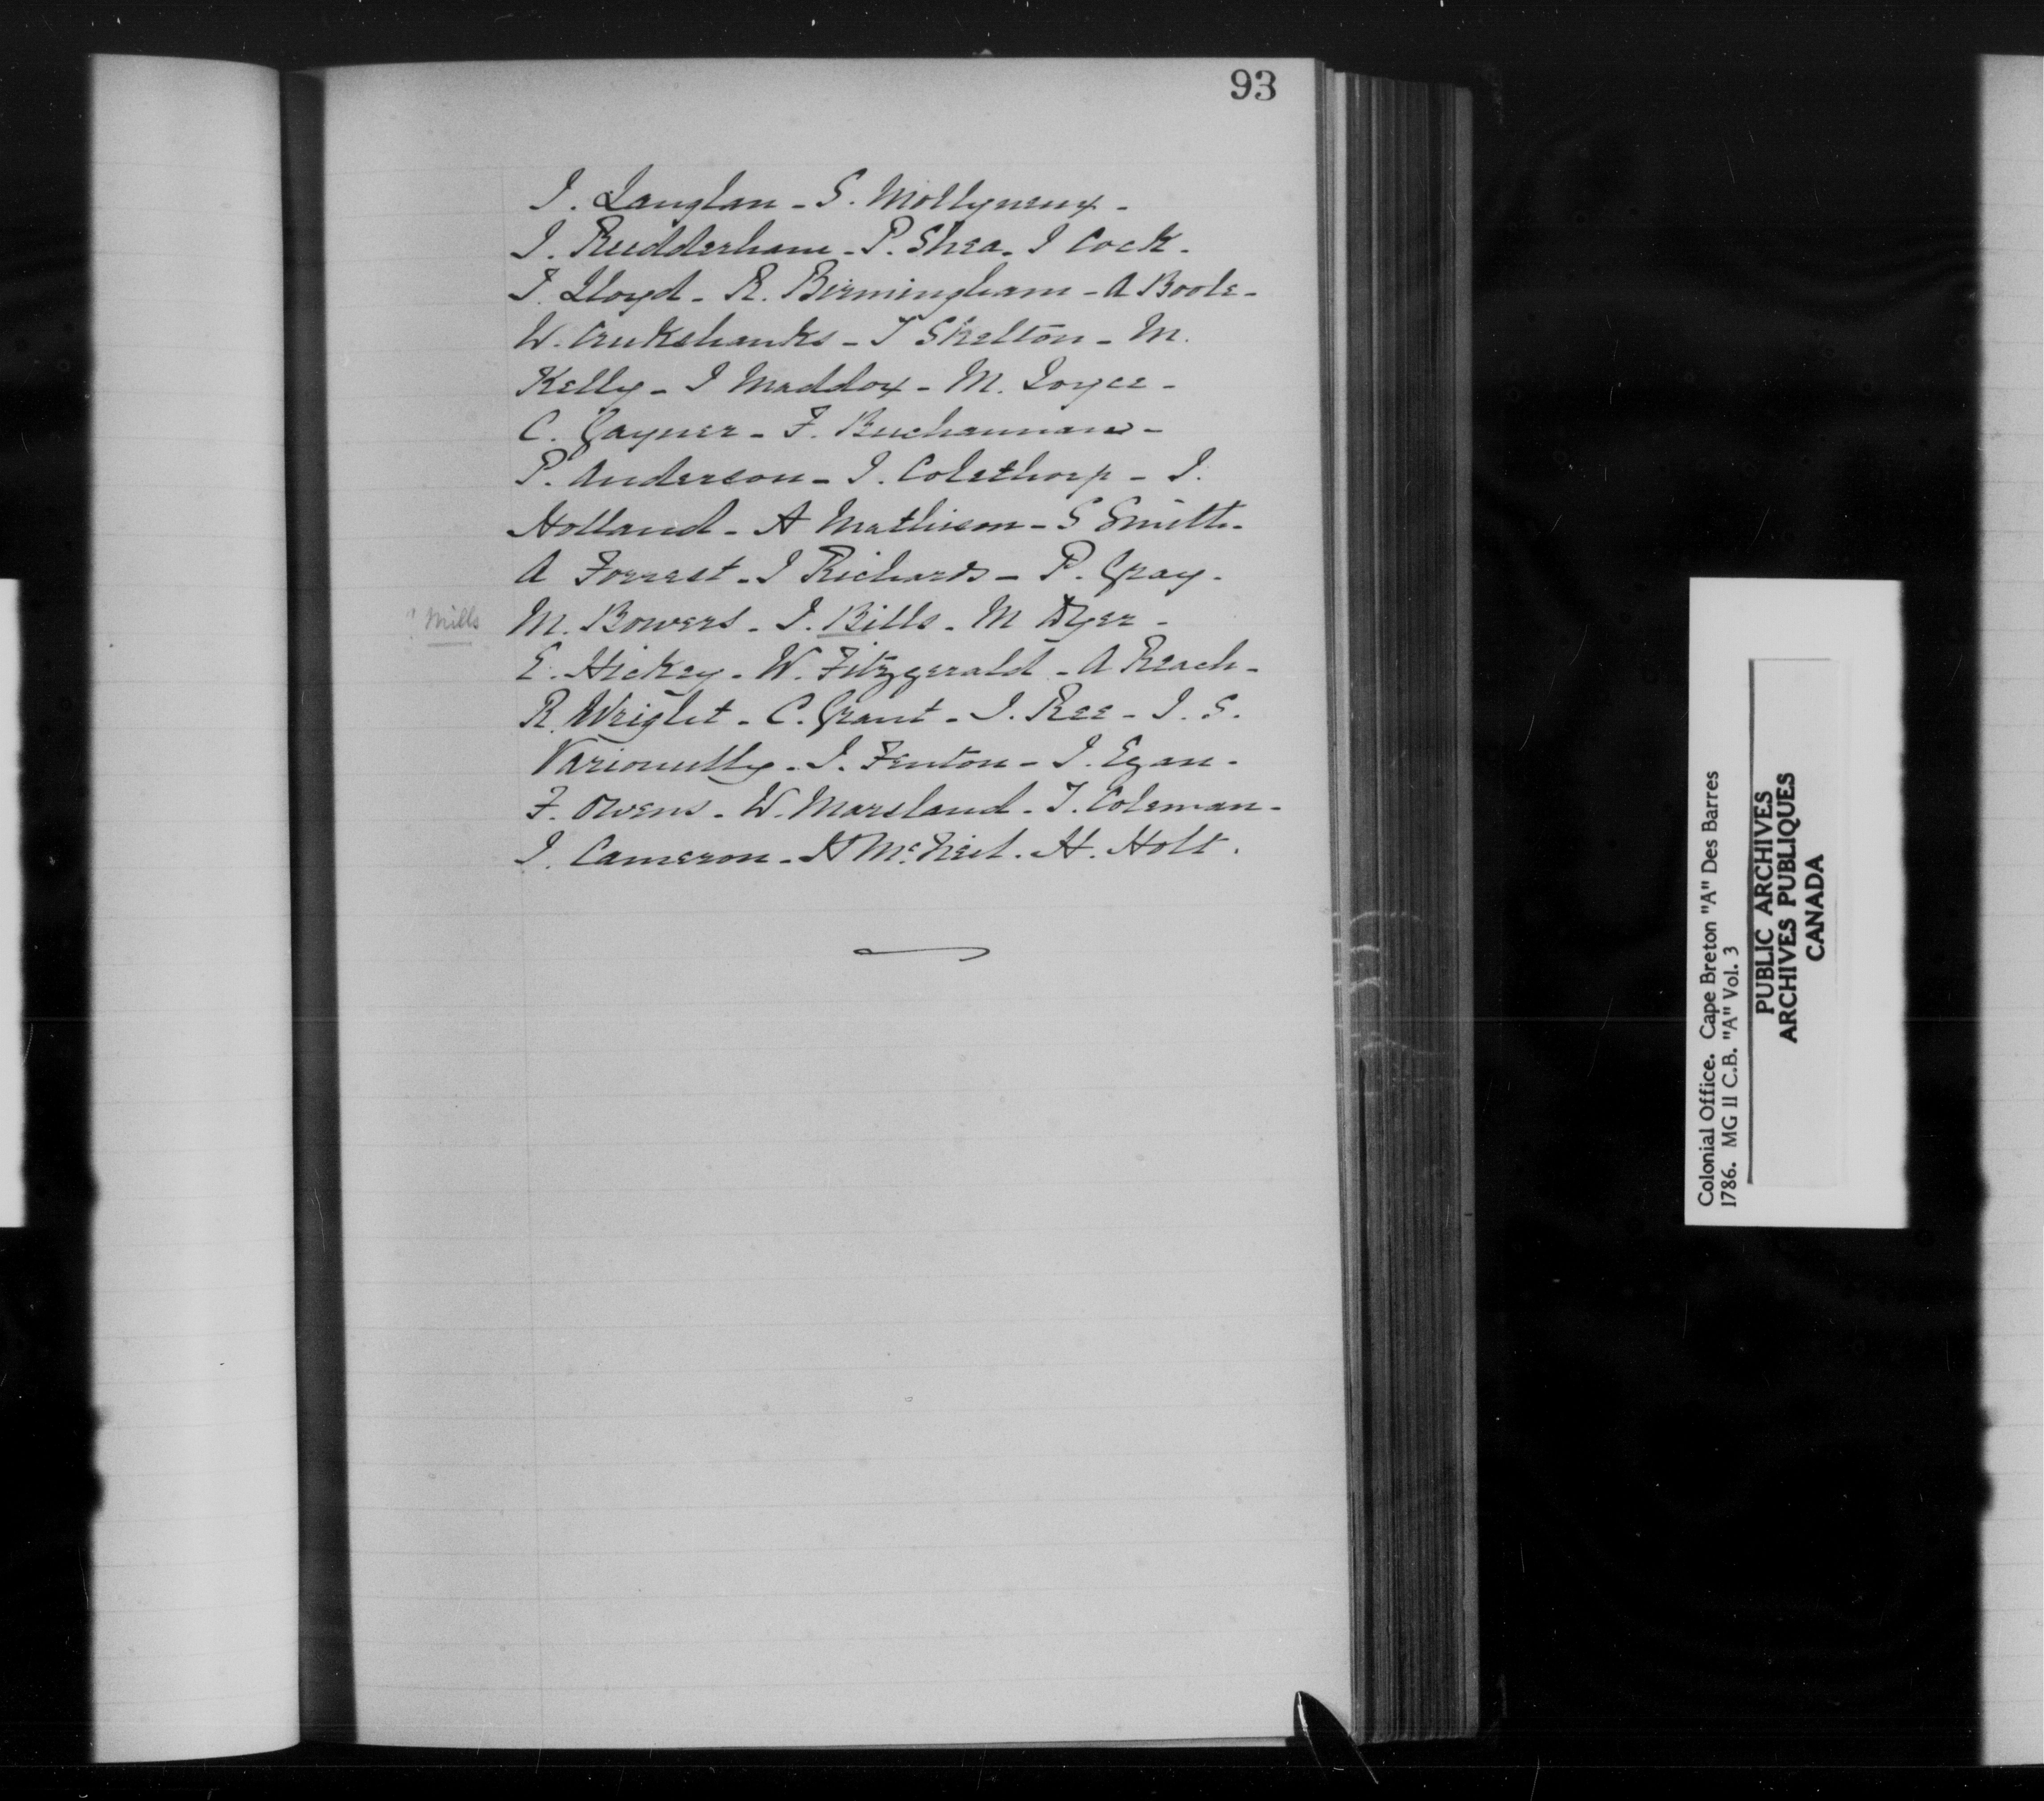 93
I. Langlan - S. Mollyneux -
I. Rudderham - P. Shea - I Cock -
T. Lloyd - R. Birmingham - A Boole -
W. Crukshanks - T Skelton - M.
Kelly - I Maddox - M. Joyce -
C. Gayner - F. Buchannan -
P. Anderson - I. Colsthorp - I.
Holland - A Mathison - S Smith -
A Forrest - I Richards - P. Gray -
? Mills
M. Bowers - I. Bills - M Dyer -
E. Hickey - W. Fitzgerald - A Reach -
R. Wright - C. Grant - I. Ree - I. S.
I. Fenton - I. Egan -
F. Owens - W. Marsland - T. Coleman -
I. Cameron - H McNeil - H. Holt.
Colonial Office. Cape Breton "A" Des Barres
1786. MG 11 C.B. "A" Vol. 3
PUBLIC ARCHIVES
ARCHIVES PUBLIQUES
CANADA